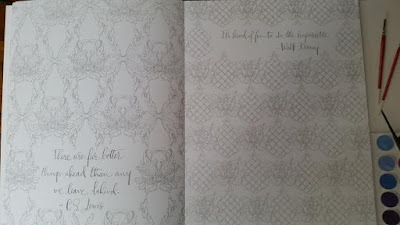 There are far better
things ahead than any
we leave behind.
- C.S. Lewis
It's kind of fun to do the impossible.
Walt Disney